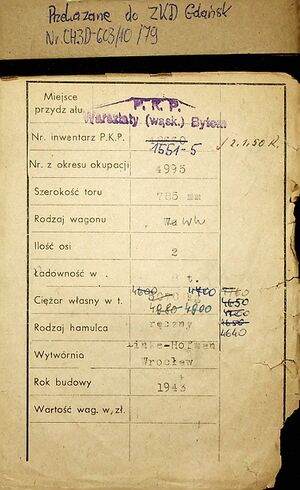 Przekazane do ZKD Gdańsk
Nr. CH3D-603/10/79
Miejsce
przydz ału
P. K. P.
Warsztaty (wąsk.) Bytom
Nr. inwentarz P.K.P.
1551-5
2.1.50 r.
Nr. z okresu okupacji 4995
Szerokość toru 785 mm
Rodzaj wagonu Wwwh
Ilość osi 2
Ładowność w . 8 t.
4600 4700
Ciężar własny w t.
4880-4800
4650
4640
Rodzaj hamulca ręczny
Wytwórnia Linke-Hofman
Wrocław
Rok budowy 1943
Wartość wag. w. zł.